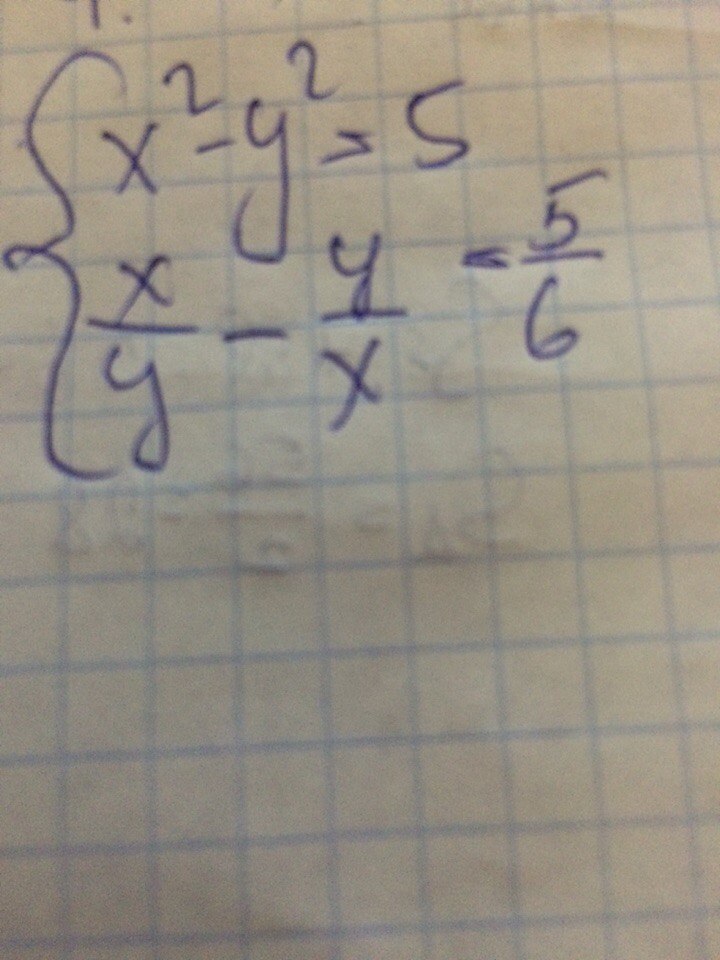 x² - y² = 5
x/y - y/x = 5/6